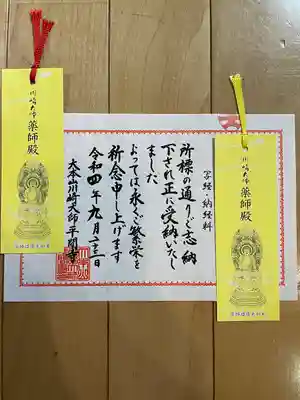 川崎大師 薬師殿
写経・納経料
所標の通りご志納
下され正に受納いたし
ました
よっては永くご繁栄を
祈念申し上げます
令和四年九月二十二日
大本山川崎大師平間寺
川崎大師 薬師殿